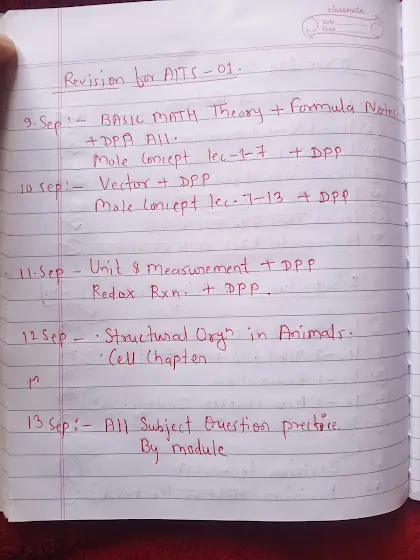 classmate
Date
Page
Revision for AITS - 01.
9. Sep :- BASIC MATH Theory + Formula Notes
+ DPP All.
Mole Concept lec-1-7 + DPP
10 Sep :- Vector + DPP
Mole Concept lec-7-13 + DPP
11. Sep - Unit & measurement + DPP
Redox Rxn. + DPP.
12 Sep - · Structural Orgn in Animals.
· Cell Chapter
13 Sep :- All Subject Question prectice
By module